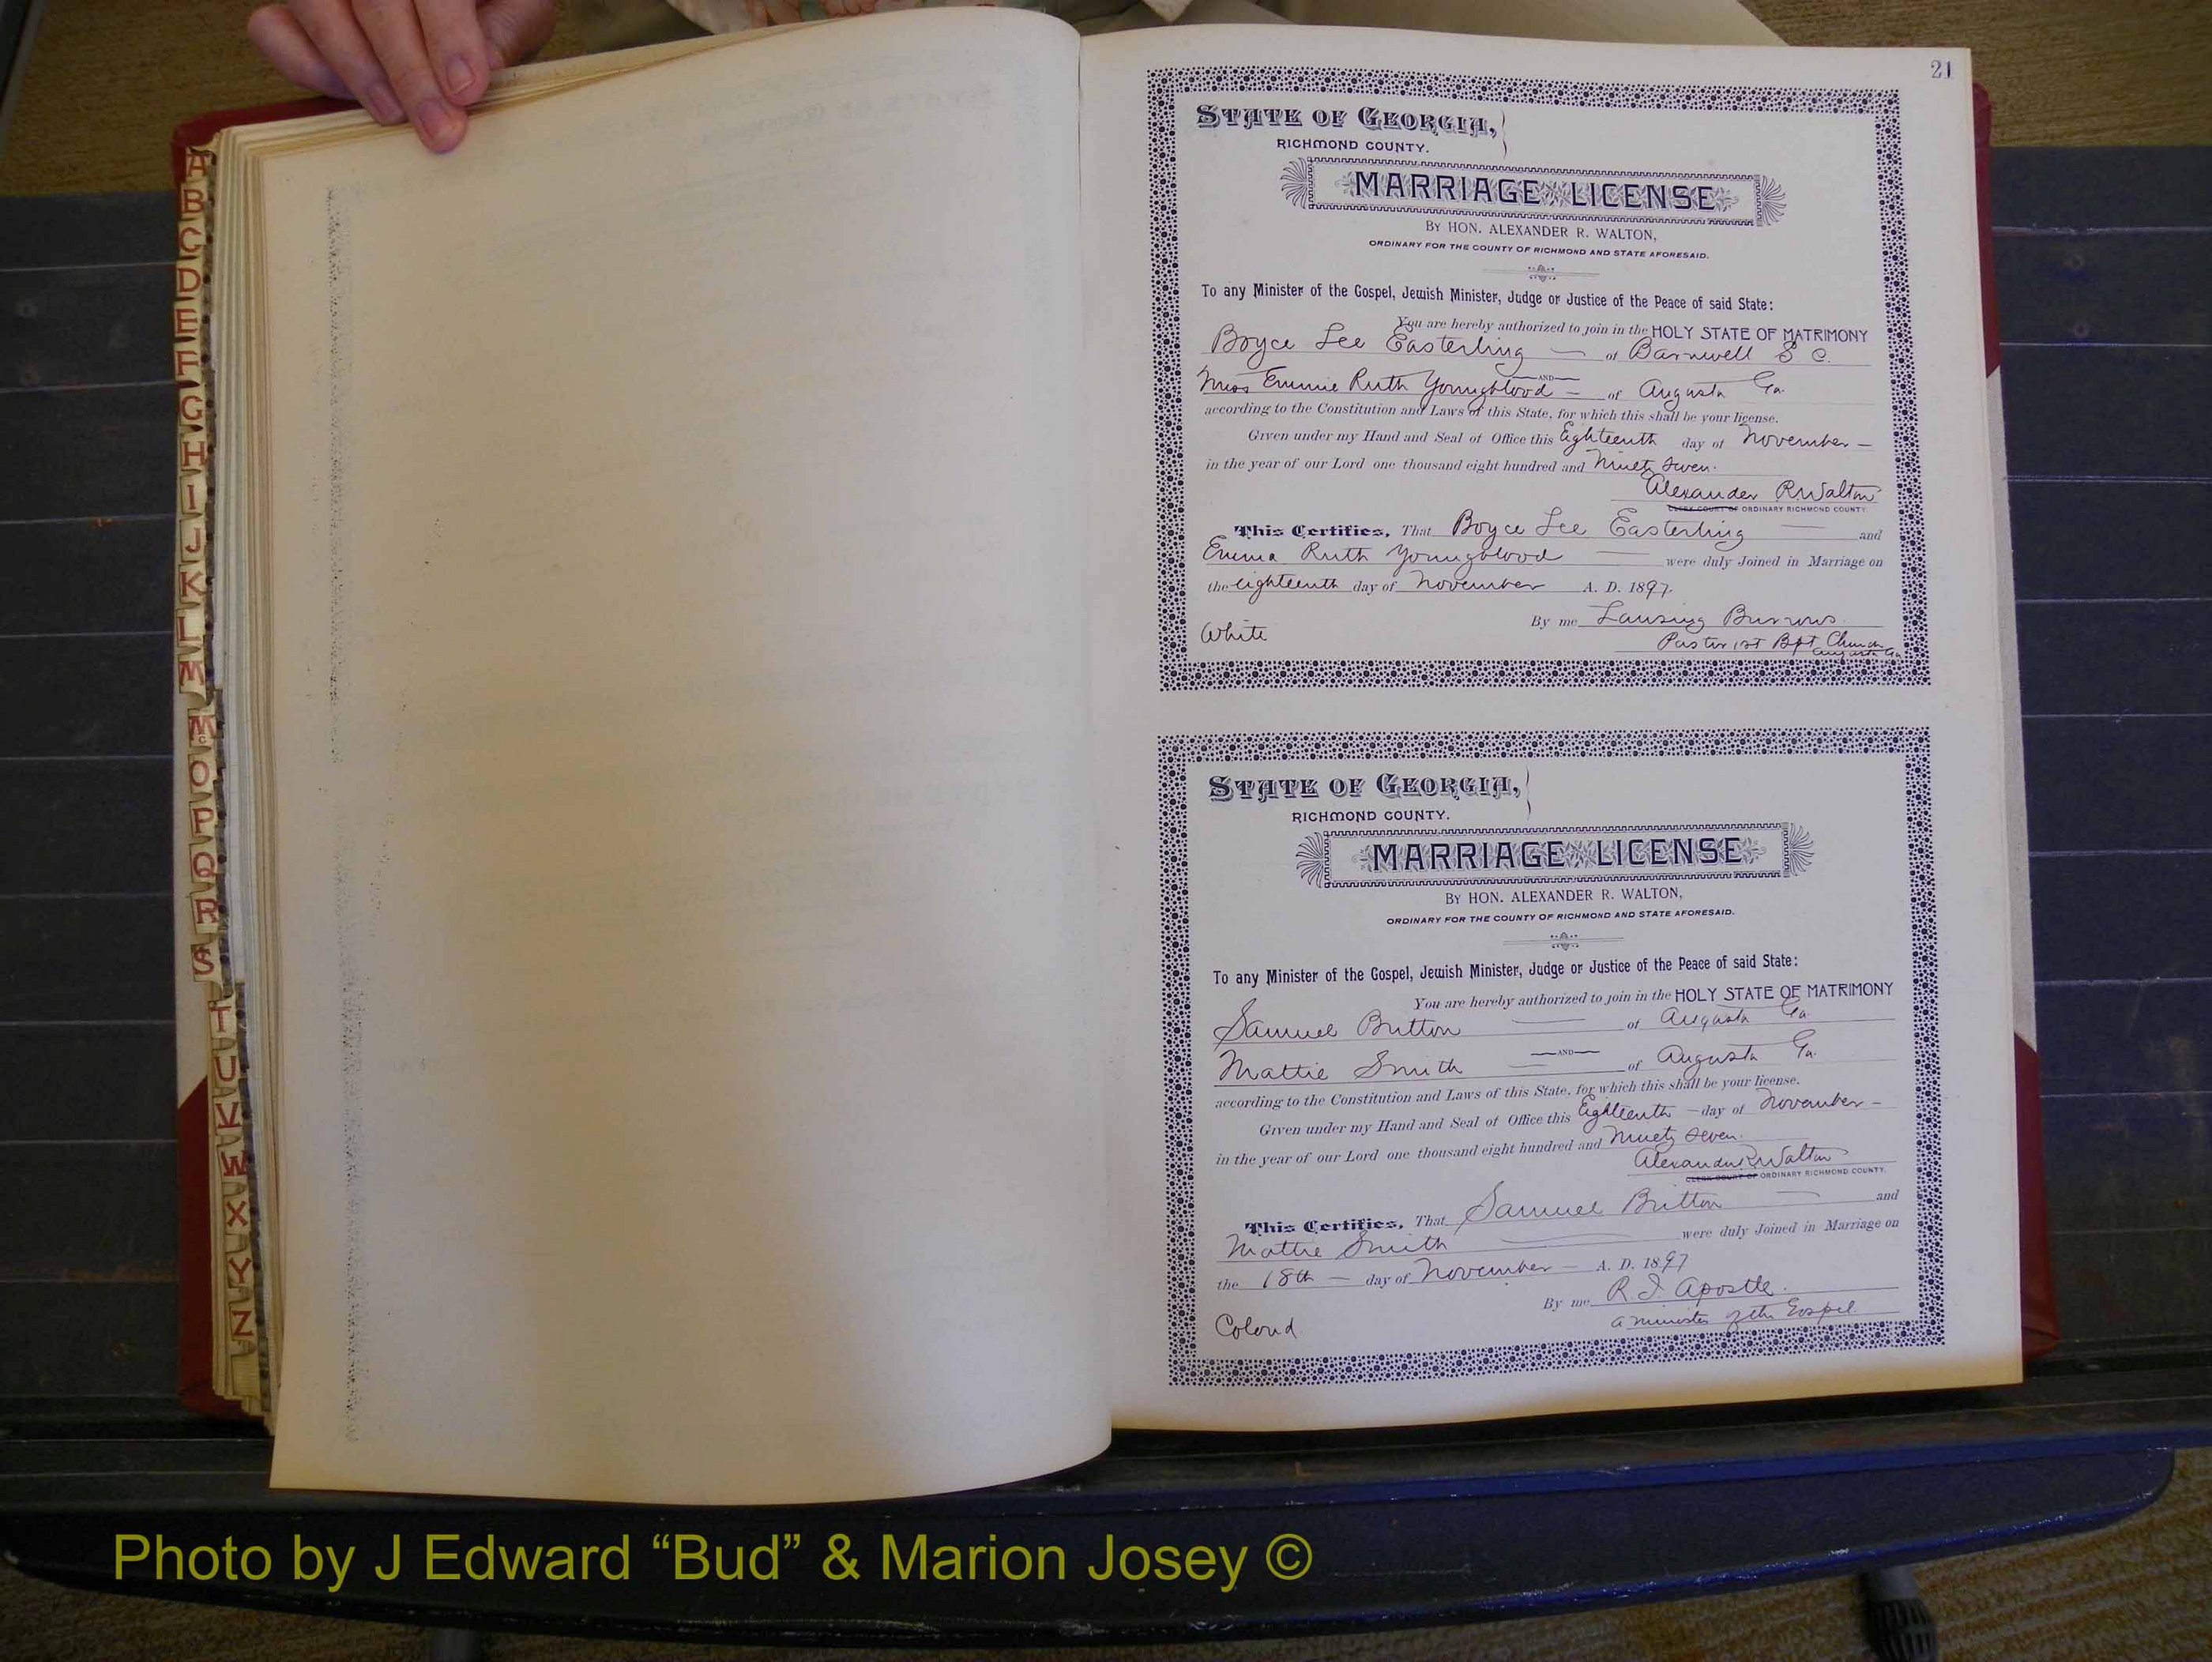 21
A
B
C
D
E
F
G
H
I
J
K
L
M
Mc
O
P
Q
R
S
T
U
V
W
X
Y
Z
STATE OF GEORGIA,
RICHMOND COUNTY.
MARRIAGE LICENSE
BY HON. ALEXANDER R. WALTON,
ORDINARY FOR THE COUNTY OF RICHMOND AND STATE AFORESAID.
To any Minister of the Gospel, Jewish Minister, Judge or Justice of the Peace of said State:
You are hereby authorized to join in the HOLY STATE OF MATRIMONY
Boyce Lee Easterling — of Barnwell S C.
—AND—
Miss Emmie Ruth Youngblood — of Augusta Ga.
according to the Constitution and Laws of this State, for which this shall be your license.
Given under my Hand and Seal of Office this Eighteenth day of November —
in the year of our Lord one thousand eight hundred and Ninety Seven.
Alexander R Walton
CLERK COURT OF ORDINARY RICHMOND COUNTY.
This Certifies, That Boyce Lee Easterling — and
Emma Ruth Youngblood — were duly Joined in Marriage on
the eighteenth day of November A. D. 1897.
By me Lansing Burrows.
White
Pastor 1st Bpt Church
Augusta Ga
STATE OF GEORGIA,
RICHMOND COUNTY.
MARRIAGE LICENSE
BY HON. ALEXANDER R. WALTON,
ORDINARY FOR THE COUNTY OF RICHMOND AND STATE AFORESAID.
To any Minister of the Gospel, Jewish Minister, Judge or Justice of the Peace of said State:
You are hereby authorized to join in the HOLY STATE OF MATRIMONY
Samuel Britton — of Augusta Ga.
—AND—
Mattie Smith — of Augusta Ga.
according to the Constitution and Laws of this State, for which this shall be your license.
Given under my Hand and Seal of Office this Eighteenth — day of November —
in the year of our Lord one thousand eight hundred and Ninety Seven.
Alexander R Walton
CLERK COURT OF ORDINARY RICHMOND COUNTY.
This Certifies, That Samuel Britton — and
Mattie Smith — were duly Joined in Marriage on
the 18th — day of November — A. D. 1897
By me R. I. Apostle.
Colord
a minister of the Gospel
Photo by J Edward “Bud” & Marion Josey ©